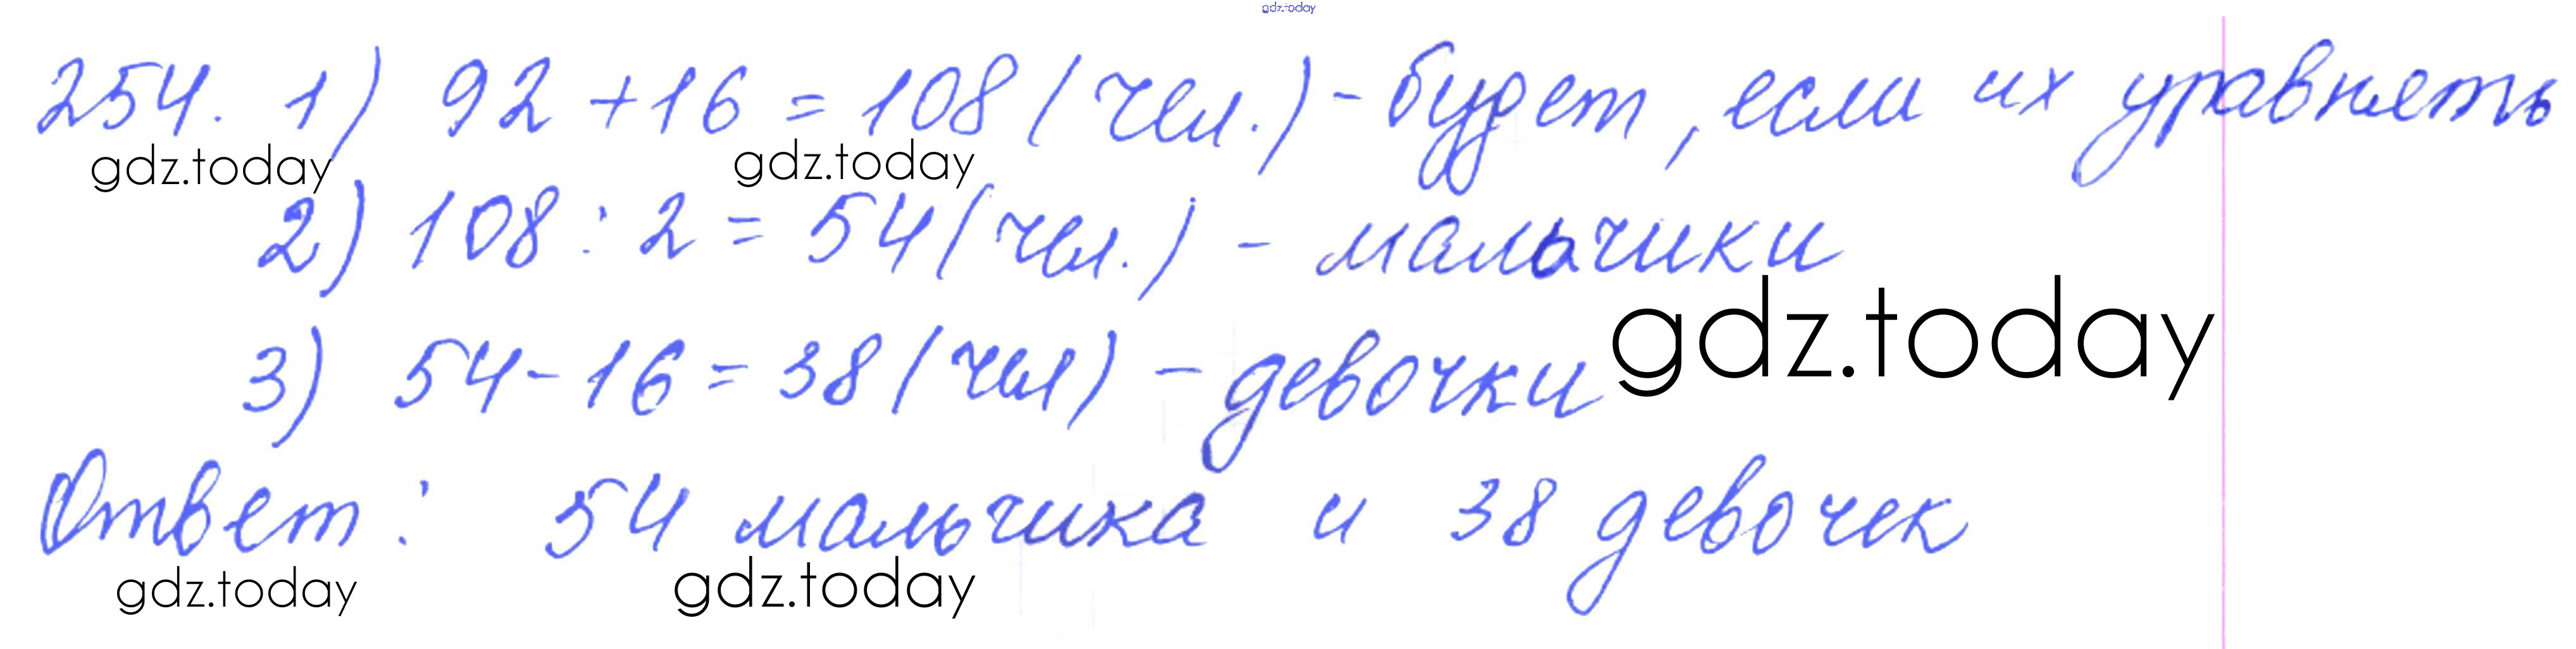 gdz.today
254. 1) 92 + 16 = 108 (чел.) - будет, если их уравнять
gdz.today gdz.today
2) 108 : 2 = 54 (чел.) - мальчики
gdz.today
3) 54 - 16 = 38 (чел) - девочки
Ответ: 54 мальчика и 38 девочек
gdz.today gdz.today